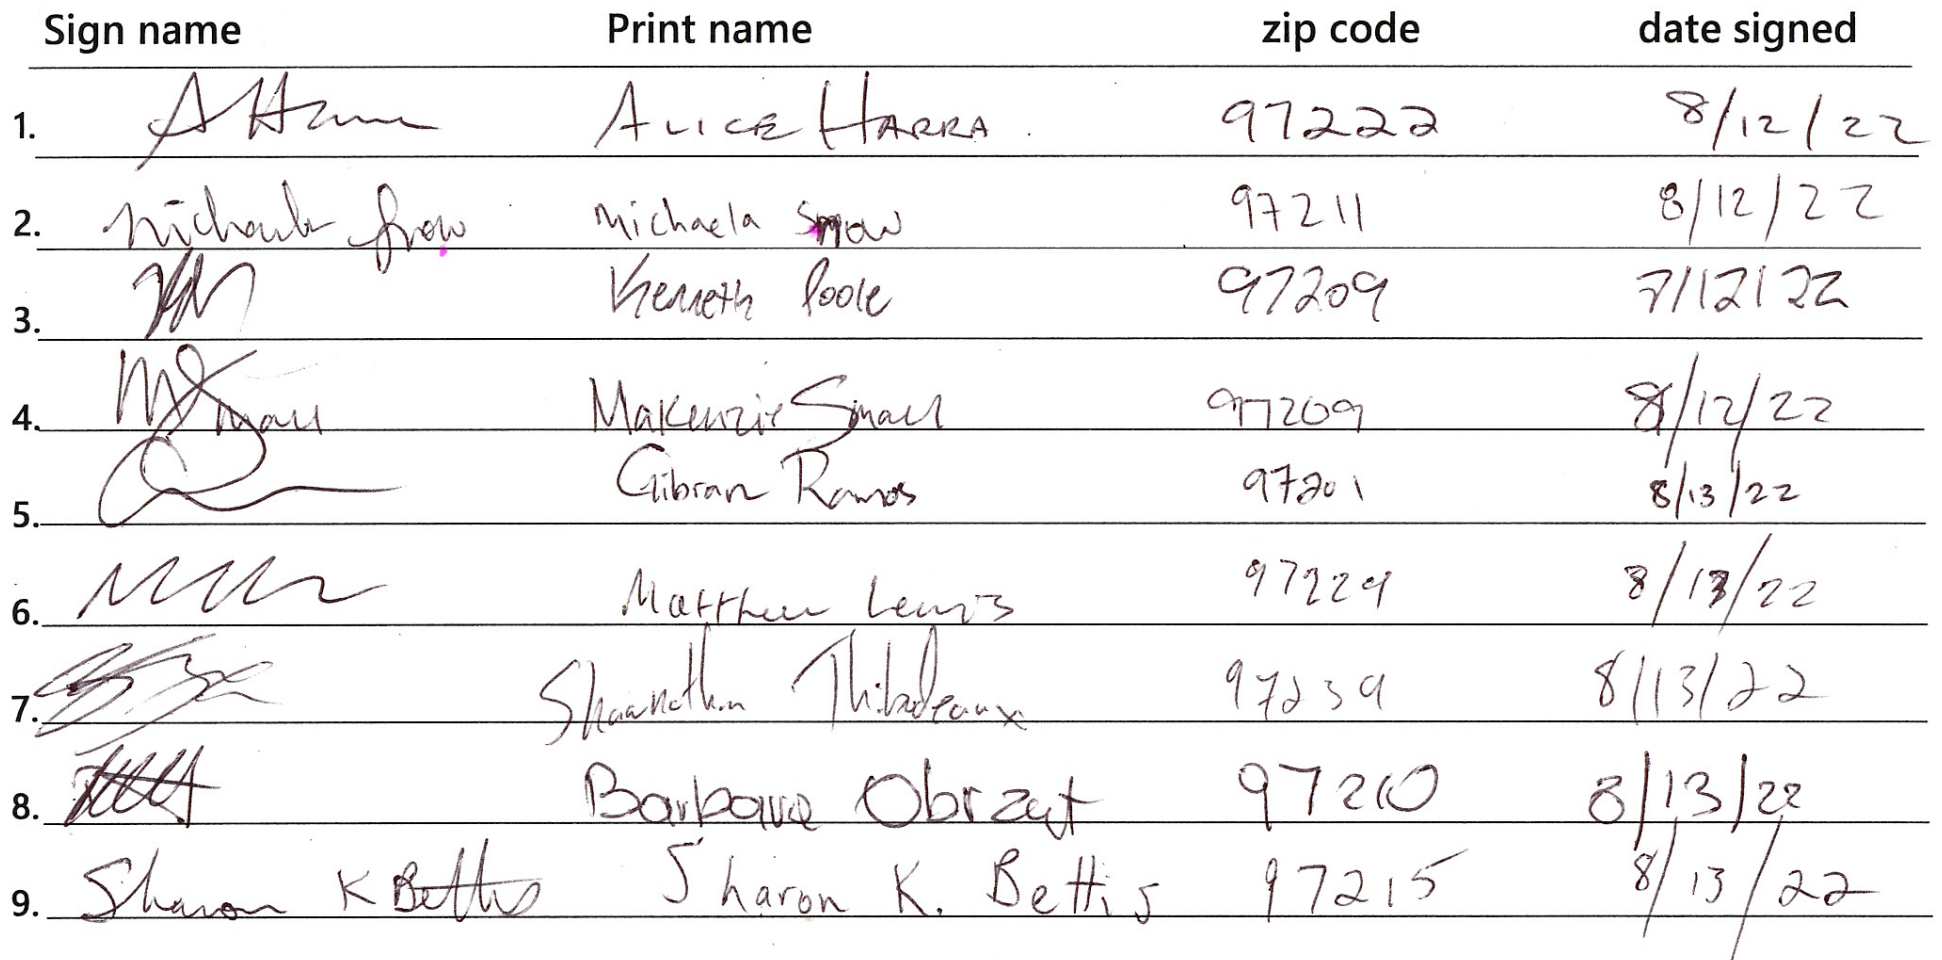 Sign name Print name zip code date signed
1. ALICE HARRA 97222 8/12/22
2. Michaela Snow Michaela Snow 97211 8/12/22
3. Kenneth Poole 97209 7/12/22
4. M Small Makenzie Small 97209 8/12/22
5. Gibran Ramos 97201 8/13/22
6. Matthew Lewis 97229 8/13/22
7. Thibodeaux 97239 8/13/22
8. Barbara Obrzut 97210 8/13/22
9. Sharon K Bettis Sharon K. Bettis 97215 8/13/22